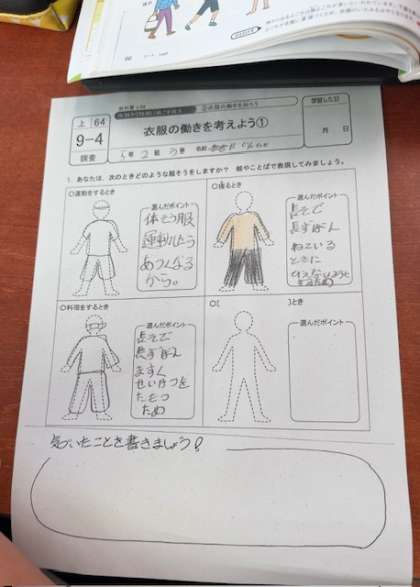 上 64
9-4
調査
衣服の働きを考えよう①
学習した日
月 日
1. あなたは、次のときどのような服そうをしますか? 絵やことばで表現してみましょう。
○運動をするとき
選んだポイント
体そう服
運動したら
あつくなる
から。
○寝るとき
選んだポイント
長そで
長ずぼん
ねている
ときに
○料理をするとき
選んだポイント
長そで
長ずぼん
ますく
せいけつを
たもつ
ため
○( )とき
選んだポイント
気づいたことを書きましょう!